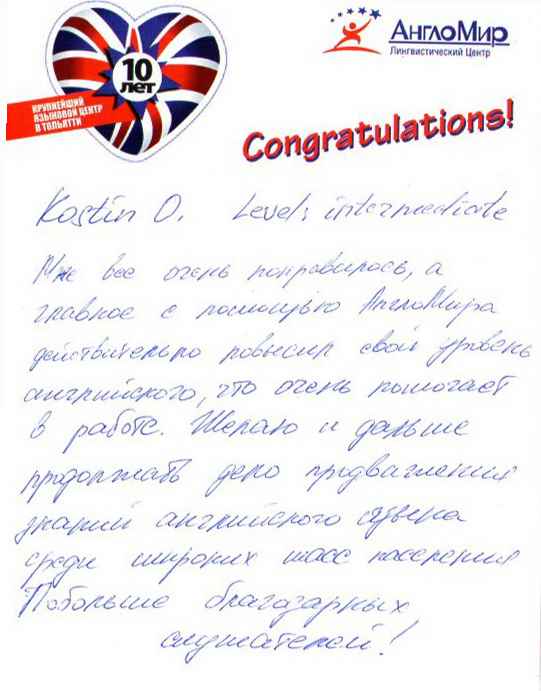 10
лет
КРУПНЕЙШИЙ
ЯЗЫКОВОЙ ЦЕНТР
В ТОЛЬЯТТИ
АнглоМир
Лингвистический Центр
Congratulations!
Kostin O. Level: intermediate
Мне все очень понравилось, а
главное с помощью АнглоМира
действительно повысил свой уровень
английского, что очень помогает
в работе. Желаю и дальше
продолжать дело продвигления
знаний английского языка
среди широких масс населения
Побольше благодарных
слушателей!